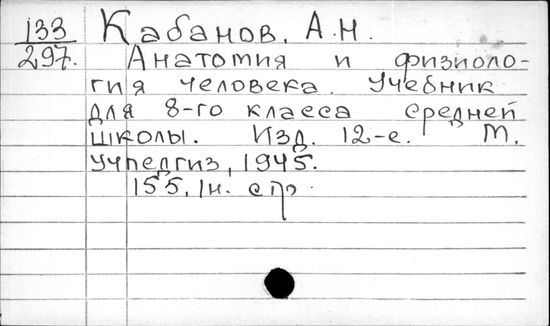 133 Кабанов, А.Н.
297. Анатомия и физиоло-
гия человека. Учебник
для 8-го класса средней
школы. Изд. 12-е. М.
Учпедгиз, 1945.
155, 1н. стр.